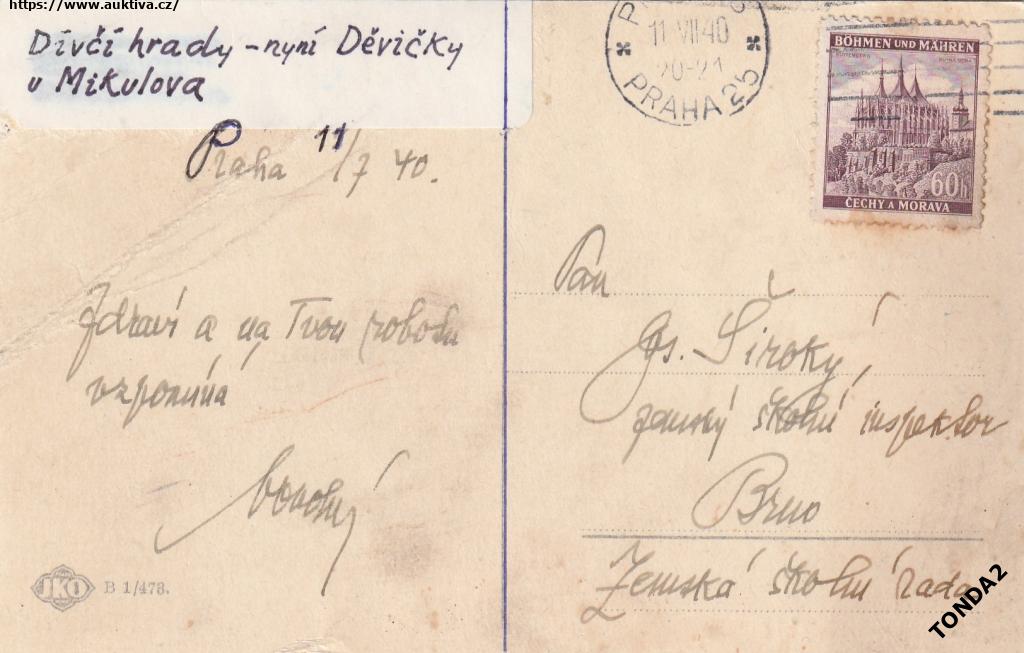 https://www.auktiva.cz/
Dívčí hrady - nyní Děvičky
u Mikulova
Praha 11/7 40.
Zdraví a na Tvou
vzpomíná
JKO B 1/473.
11 VII 40
20-21
PRAHA 25
BÖHMEN UND MÄHREN
60h
ČECHY A MORAVA
Pán
Široký,
zemský školní inspektor
Brno
Zemská školní rada
TONDA2